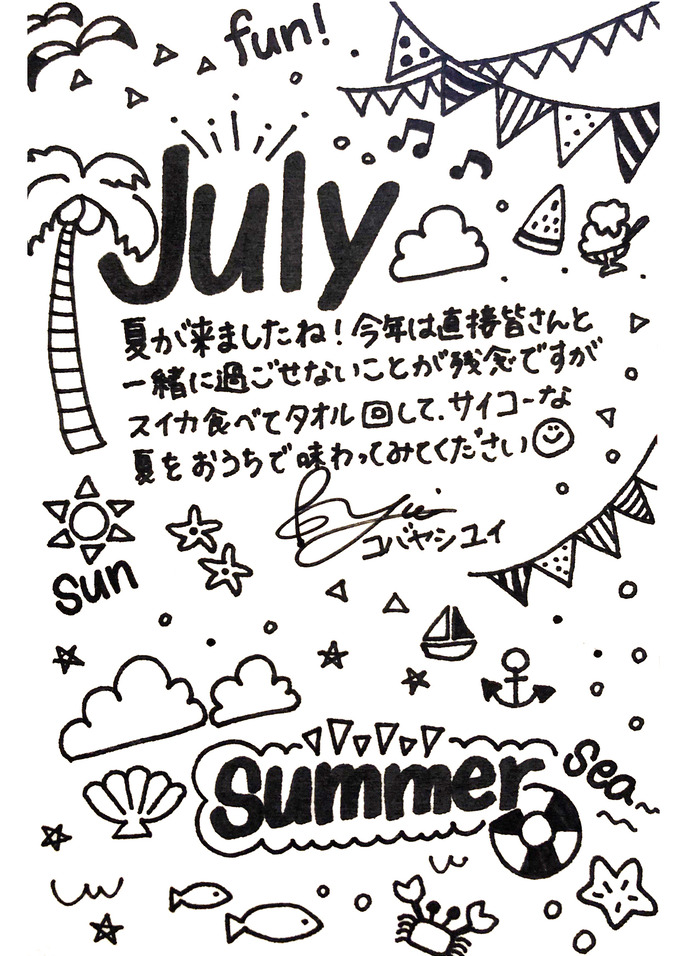 fun!
July
夏が来ましたね！今年は直接皆さんと
一緒に過ごせないことが残念ですが
スイカ食べてタオル回して、サイコーな
夏をおうちで味わってみてください
コバヤシユイ
sun
Summer
sea